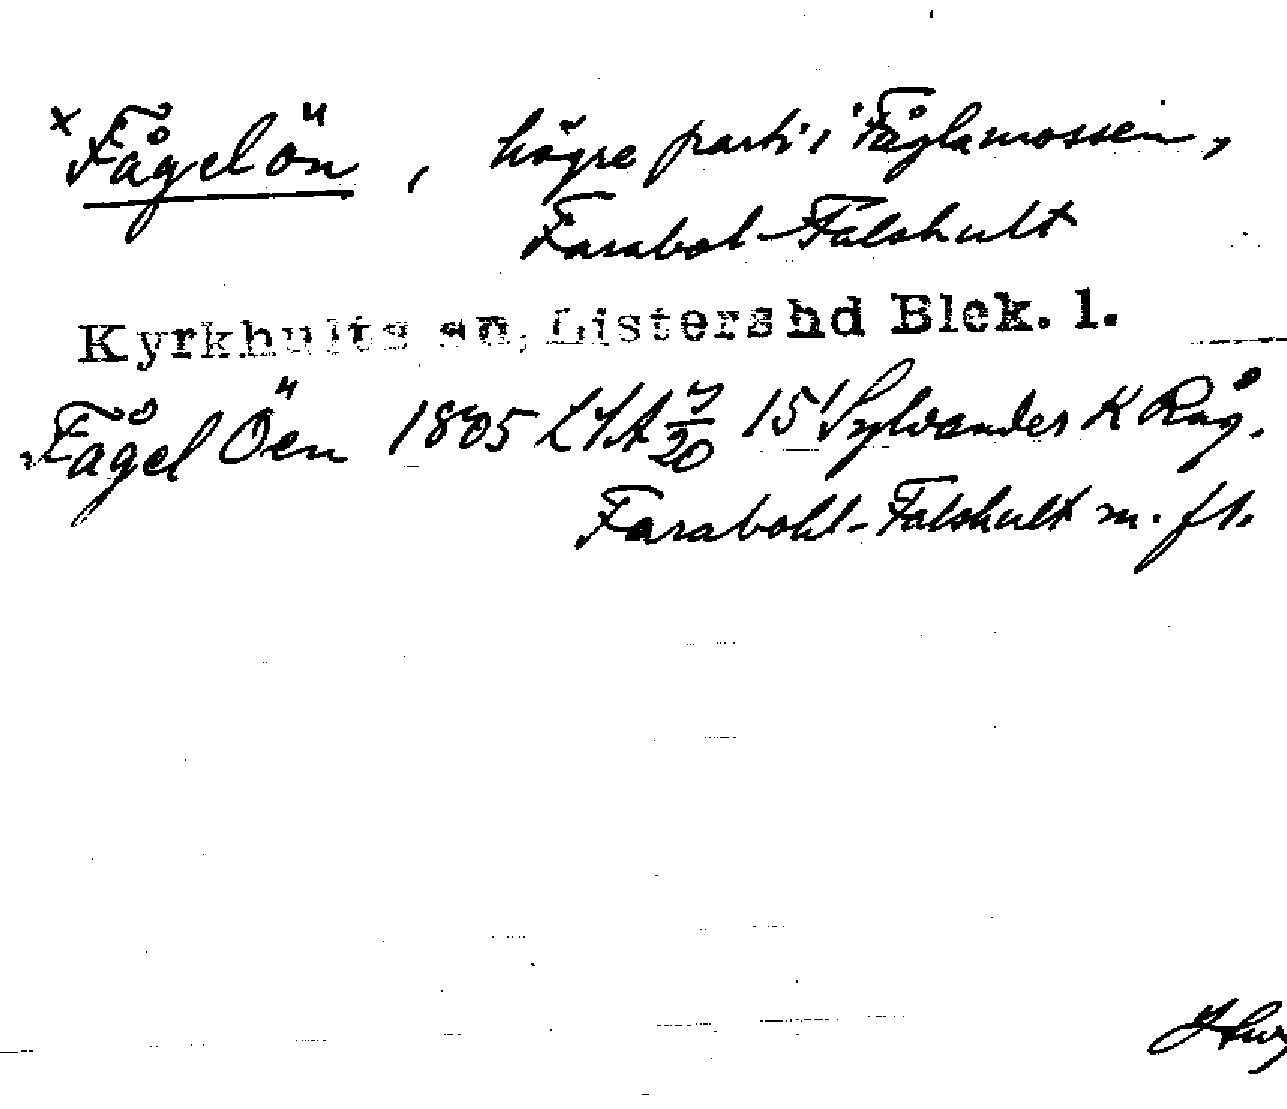 x Fågelön, högre parti i Fåglamossen,
Farabol-Falshult
Kyrkhults sn, Listershd Blek. l.
Fågel Öen 1805 LSA 7/20 15' Sylvander K Råg.
Farabohl-Falshult m. fl.